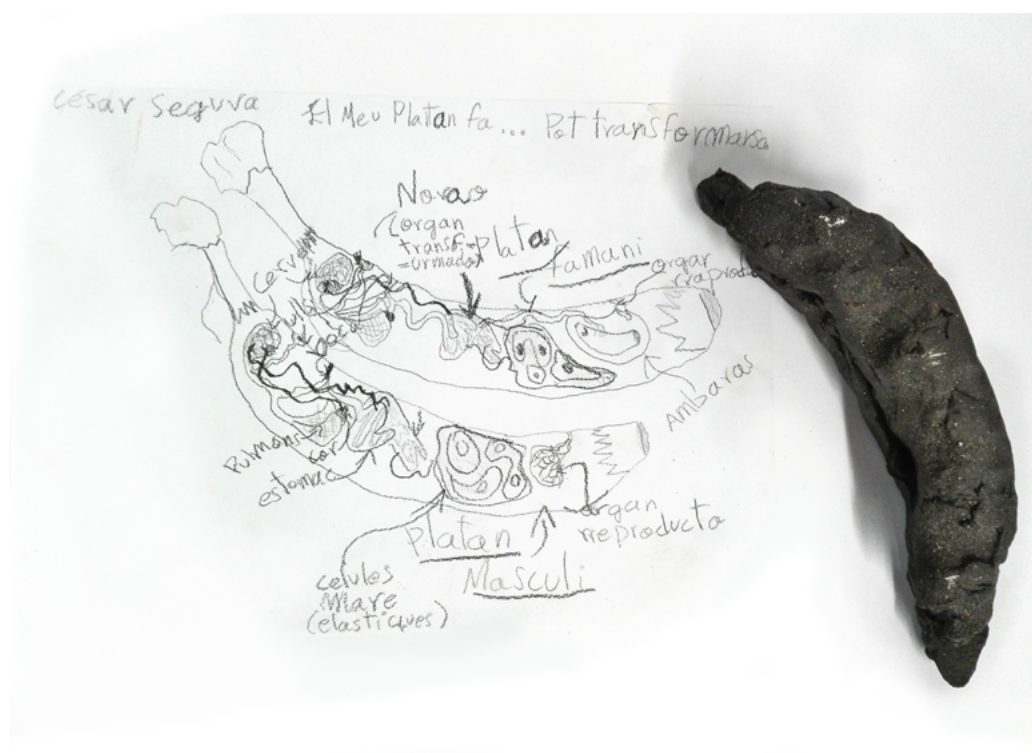 César Segura
El Meu Platan fa... Pot transformarsa
Novao
(organ
transf-
=urmador
Platan
famani
organ
rraproducto
cervell
ull
boca
Ambaras
Pulmons
cor
estomac
organ
rreproducto
Platan
Masculi
celules
Mare
(elastiques)